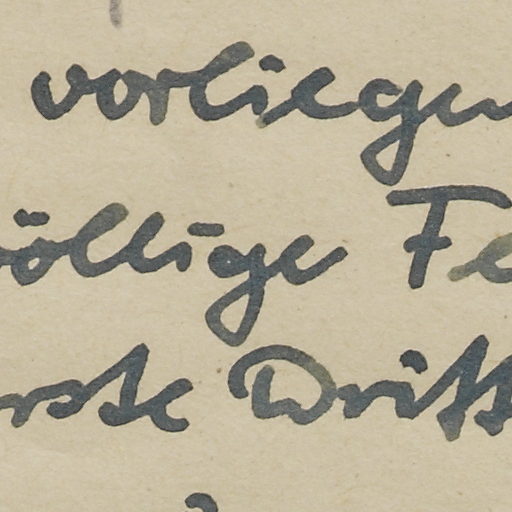 vorliegen
völlige Fe
erste Dritt